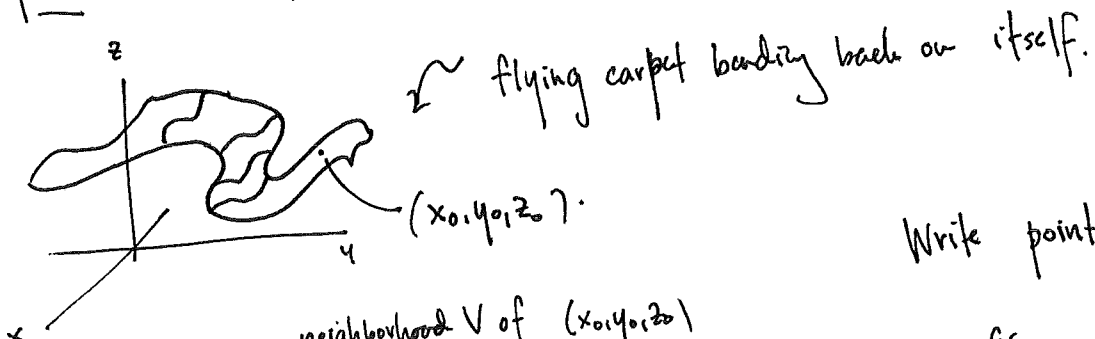 z
flying carpet bending back on itself.
(x₀,y₀,z₀).
y
Write point
x
neighborhood V of (x₀,y₀,z₀)